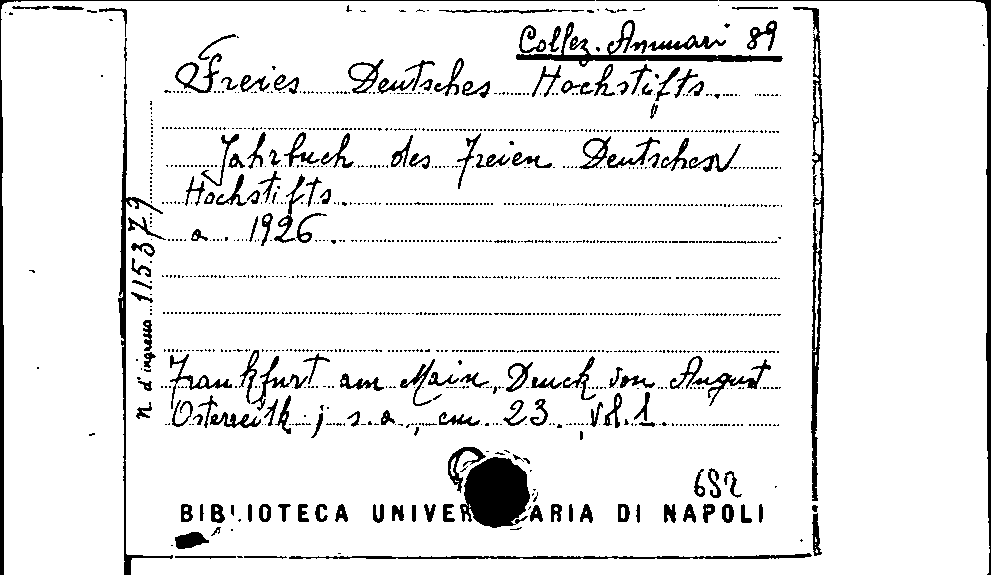 Collez. Annuari 89
Freies Deutsches Hochstifts.
Jahrbuch des Freien Deutschen
Hochstifts.
a. 1926.
n. d'ingresso 115.379
Frankfurt am Main, Druck von August
Osterreith; s.a., cm. 23. Vol. 1.
682
BIBLIOTECA UNIVER ARIA DI NAPOLI